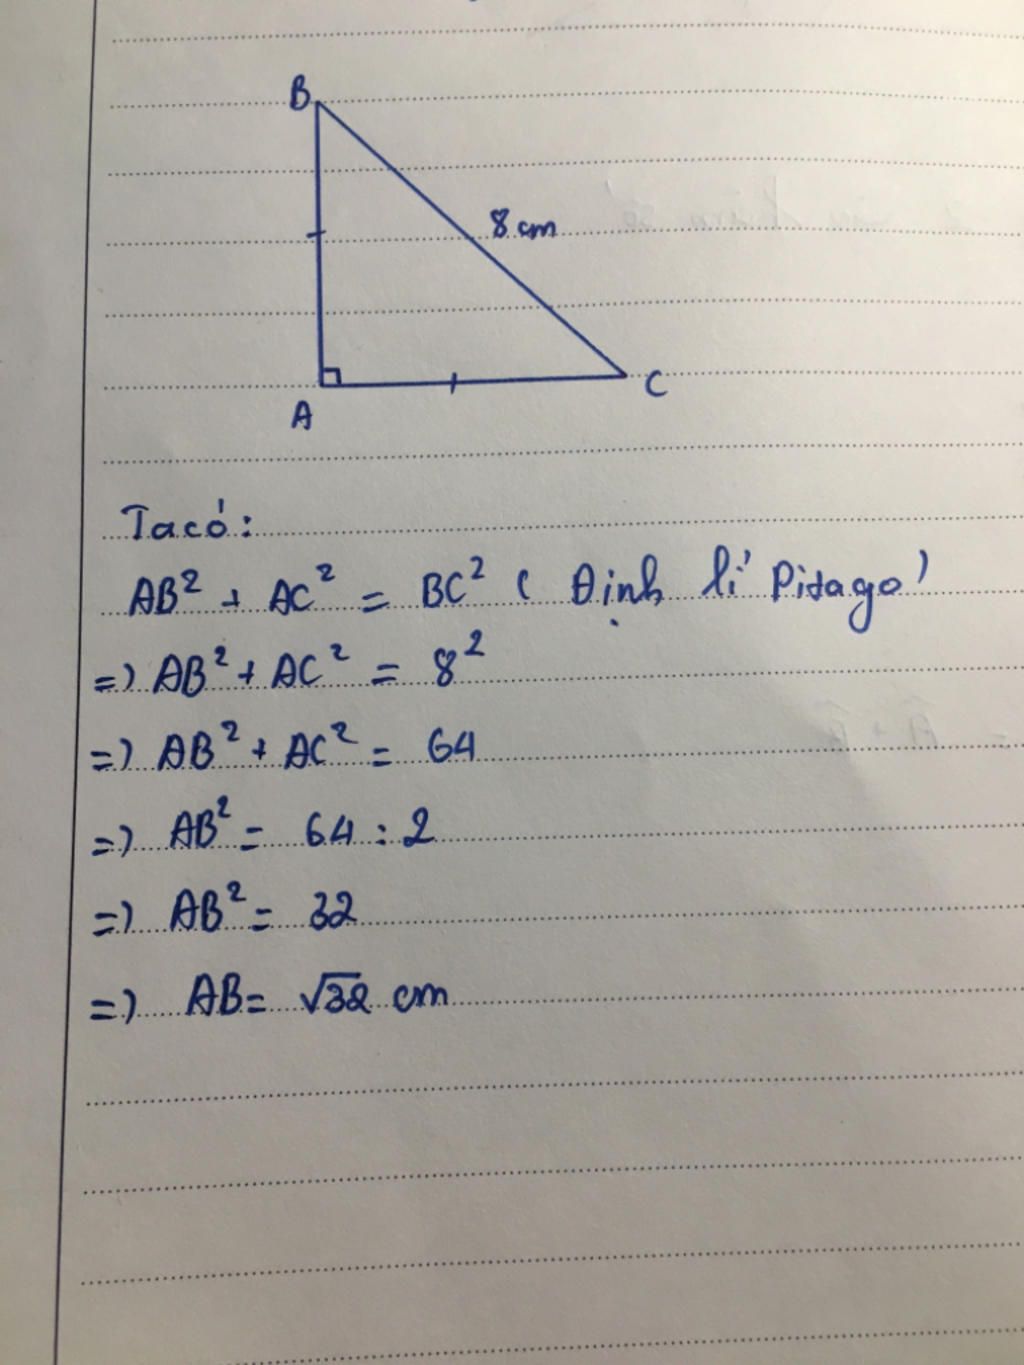 B
8 cm
A
C
Ta có:
AB² + AC² = BC² ( Định lí Pitago)
=> AB² + AC² = 8²
=> AB² + AC² = 64
=> AB² = 64 : 2
=> AB² = 32
=> AB = √32 cm